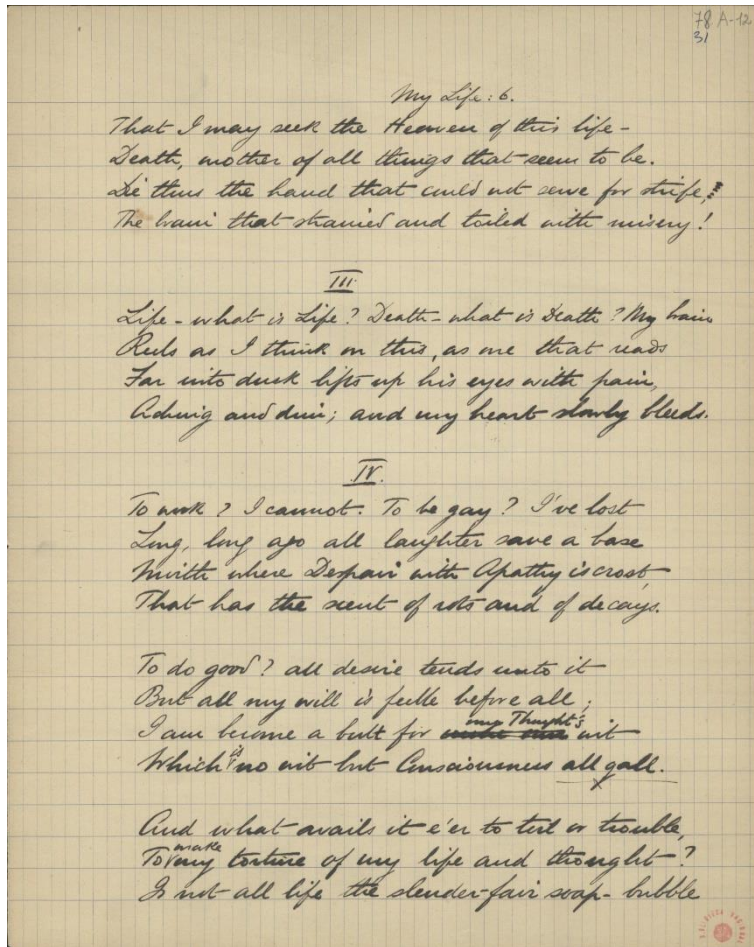 78 A-12
31
My Life: 6.
That I may seek the Heaven of this life -
Death, mother of all things that seem to be.
Die thus the hand that could not serve for strife,
The brain that strained and toiled with misery!
III.
Life - what is Life? Death - what is Death? My brain
Reels as I think on this, as one that reads
Far into dusk lifts up his eyes with pain,
Aching and dim; and my heart slowly bleeds.
IV.
To work? I cannot. To be gay? I've lost
Long, long ago all laughter save a base
Mirth where Despair with Apathy is crost,
That has the scent of rots and of decays.
To do good? all desire tends unto it
But all my will is feeble before all;
my Thought's
I am become a butt for wit
is
Which no wit but Consciousness all gall.
And what avails it e'er to toil or trouble,
make
To my torture of my life and thought?
Is not all life the slender-fair soap-bubble